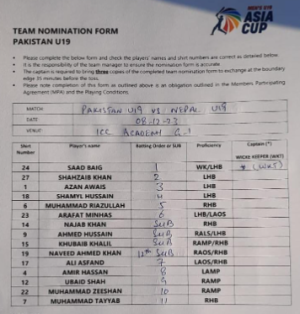 MEN'S U19
ASIA
CUP
TEAM NOMINATION FORM
PAKISTAN U19
Please complete the below form and check the players' names and shirt numbers are correct as detailed below.
It is the responsibility of the team manager to ensure the nomination form is accurate.
The captain is required to bring three copies of the completed team nomination form to exchange at the boundary edge 35 minutes before the toss.
Please note completion of this form as outlined above is an obligation outlined in the Members Participating Agreement (MPA) and the Playing Conditions.
MATCH PAKISTAN U19 VS NEPAL U19
DATE 08-12-23
VENUE ICC ACADEMY
Shirt Number Player's name Batting Order or SUB Proficiency Captain (*)
WICKET KEEPER (WKT)
24 SAAD BAIG 1 WK/LHB * (WKT)
27 SHAHZAIB KHAN 2 LHB
1 AZAN AWAIS 3 LHB
18 SHAMYL HUSSAIN 4 LHB
6 MUHAMMAD RIAZULLAH 5 RHB
23 ARAFAT MINHAS 6 LHB/LAOS
14 NAJAB KHAN SUB RHB
9 AHMED HUSSAIN SUB RALS/LHB
15 KHUBAIB KHALIL SUB RAMP/RHB
19 NAVEED AHMED KHAN 12th SUB RAOS/RHB
17 ALI ASFAND 7 LAOS/RHB
4 AMIR HASSAN 8 LAMP
12 UBAID SHAH 9 RAMP
22 MUHAMMAD ZEESHAN 10 RAMP
7 MUHAMMAD TAYYAB 11 RHB